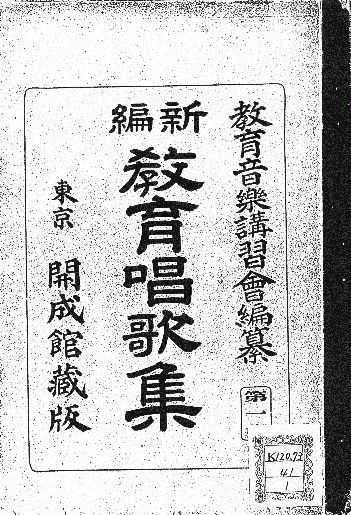 教育音樂講習會編纂
新編
教育唱歌集
第一
東京 開成館藏版
K120.73
41
1